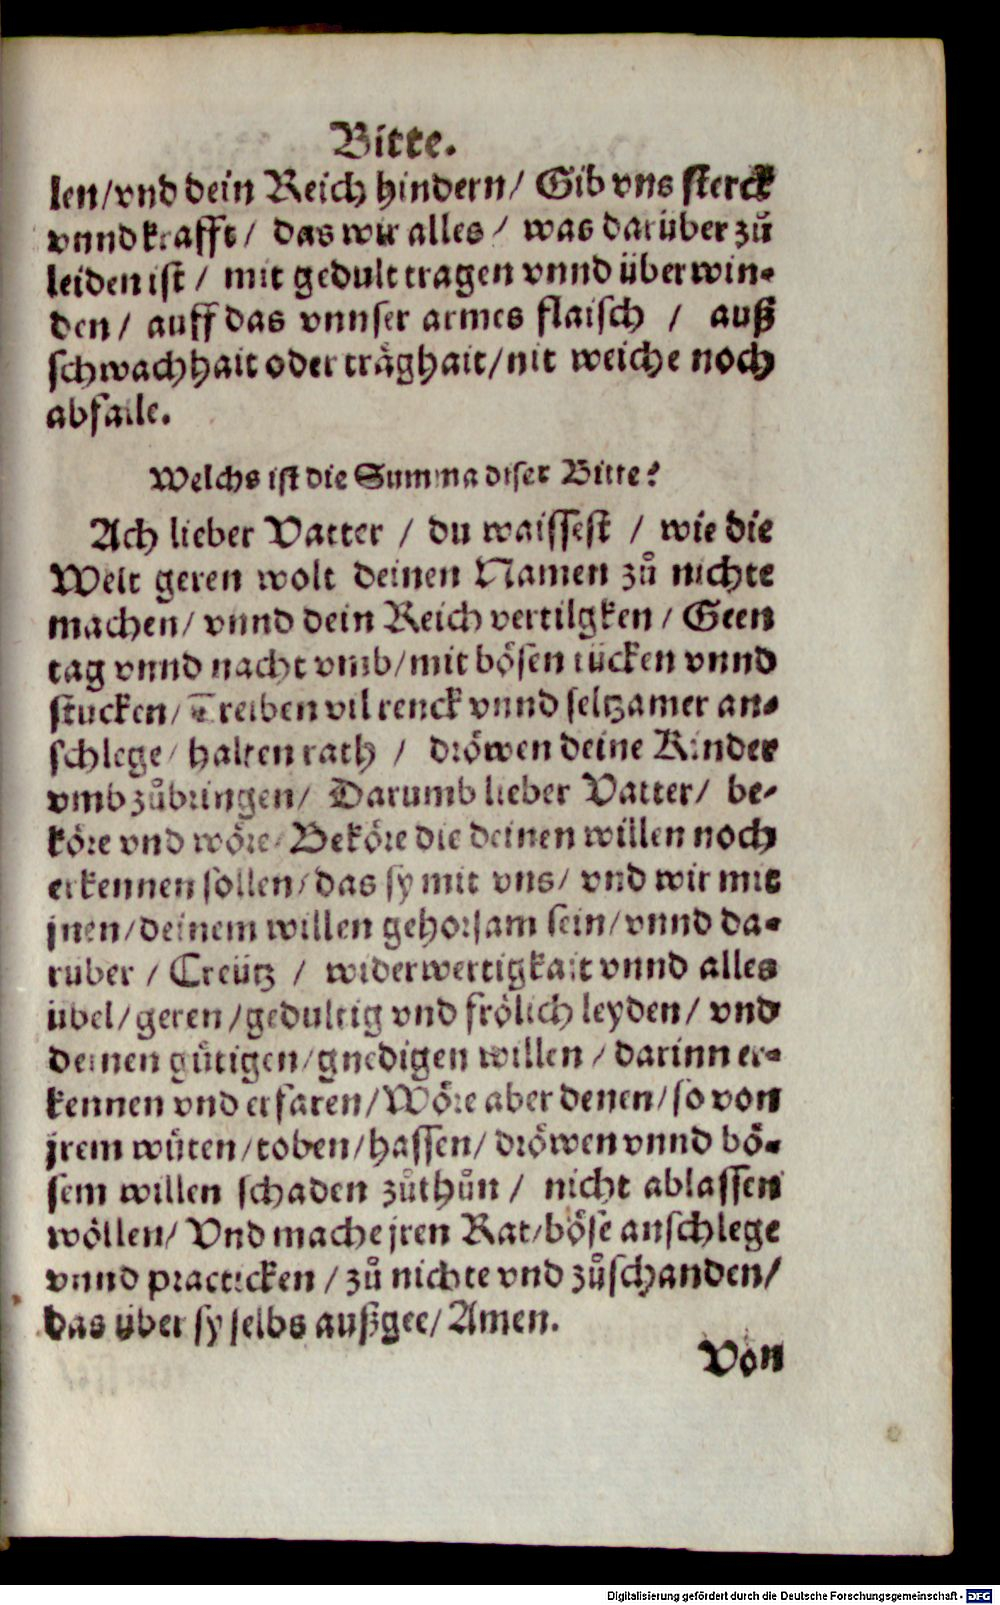 Bitte.
len/vnd dein Reich hindern/ Gib vns sterck
vnnd krafft/ das wir alles/ was darüber zů
leiden ist/ mit gedult tragen vnnd überwin-
den/ auff das vnnser armes flaisch / auß
schwachhait oder träghait/nit weiche noch
abfalle.
Welchs ist die Summa diser Bitte?
Ach lieber Vatter / du waissest / wie die
Welt geren wolt deinen Namen zů nichte
machen/ vnnd dein Reich vertilgken/ Geen
tag vnnd nacht vmb/mit bösen tücken vnnd
stucken/ Treiben vil renck vnnd seltzamer an-
schlege/ halten rath / dröwen deine Kinder
vmbzůbringen/ Darumb lieber Vatter/ be-
köre vnd wöre/Beköre die deinen willen noch
erkennen sollen/das sy mit vns/ vnd wir mit
jnen/deinem willen gehorsam sein/vnnd da-
rüber / Creütz / widerwertigkait vnnd alles
übel/geren/gedultig vnd frölich leyden/ vnd
deinen gütigen/gnedigen willen/ darinn er-
kennen vnd erfaren/Wöre aber denen/so von
jrem wüten/toben/hassen/ dröwen vnnd bö-
sem willen schaden zůthůn/ nicht ablassen
wöllen/ Vnd mache jren Rat/böse anschlege
vnnd practicken/zů nichte vnd zůschanden/
das über sy selbs außgee/Amen.
Von
Digitalisierung gefördert durch die Deutsche Forschungsgemeinschaft - DFG